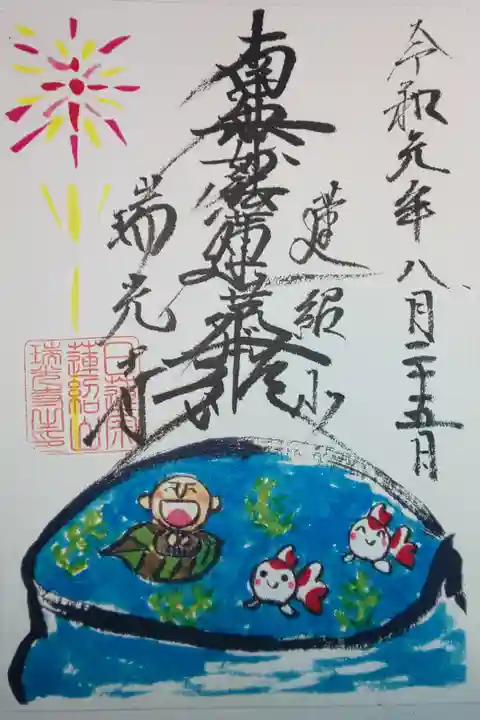 令和元年八月二十五日
蓮紹山
南無妙法蓮華経
瑞光寺
日蓮宗
蓮紹山
瑞光寺之印